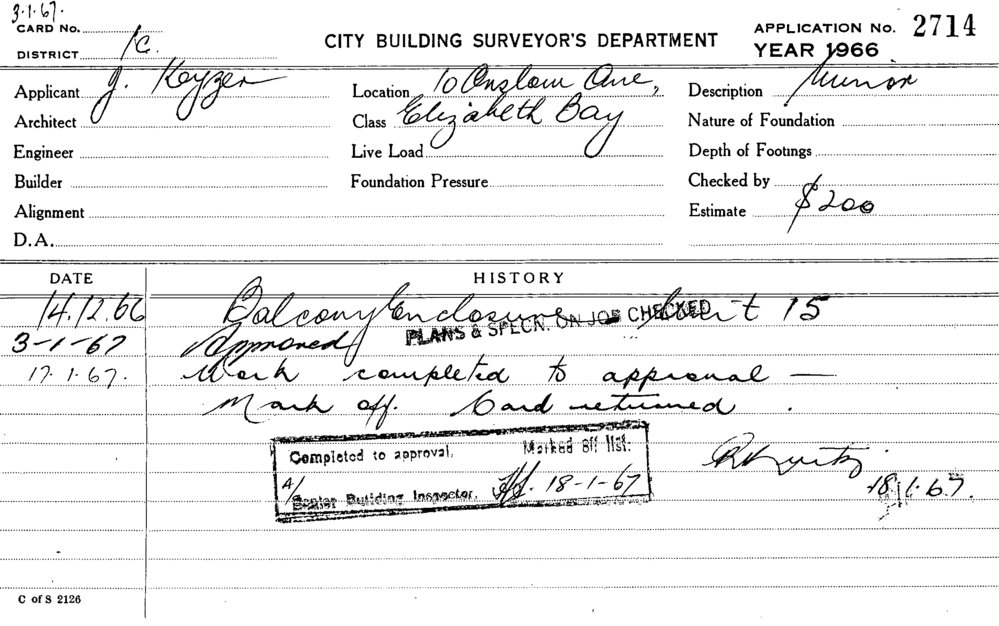 3·1·67·
CARD No.
DISTRICT /C.
CITY BUILDING SURVEYOR'S DEPARTMENT
APPLICATION No. 2714
YEAR 1966
Applicant J. Keyzer
Location 10 Onslow Ave,
Description Minor
Architect
Class Elizabeth Bay
Nature of Foundation
Engineer
Live Load
Depth of Footings
Builder
Foundation Pressure
Checked by
Alignment
Estimate $200
D.A.
DATE HISTORY
14.12.66 Balcony Enclosure 15
PLANS & SPECN. ON JOB CHECKED
3-1-67 Approved
17.1.67. Work completed to approval —
Mark off. Card returned .
Completed to approval. Marked off list.
A/ Senior Building Inspector. 18-1-67
18/1.67.
C of S 2126